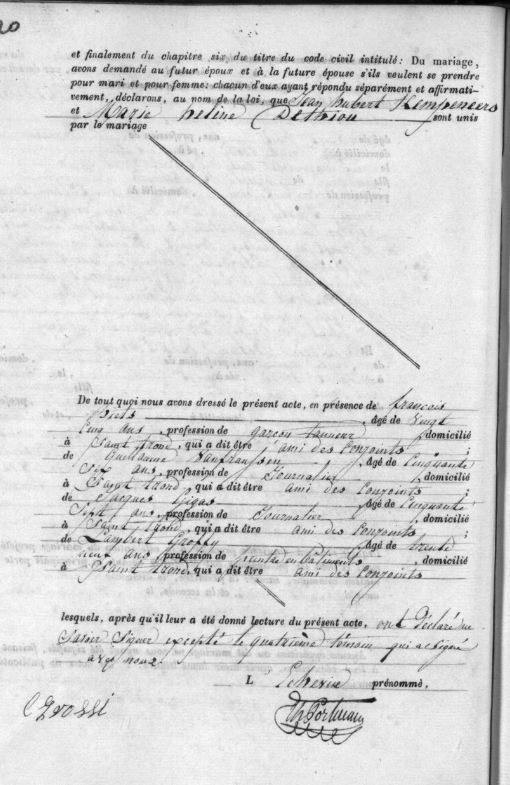 20
et finalement du chapitre six du titre du code civil intitulé: Du mariage,
avons demandé au futur époux et à la future épouse s'ils veulent se prendre
pour mari et pour femme: chacun d'eux ayant répondu séparément et affirmati-
vement, déclarons, au nom de la loi, que Jean hubert Kempeneers
et Marie heline Dethiou sont unis
par le mariage
De tout quoi nous avons dressé le présent acte, en présence de françois
âgé de Vingt
cinq ans, profession de garçon tanneur, domicilié
à Saint trond, qui a dit être ami des Conjoints;
de Guillaume, âgé de Cinquante
Six ans, profession de Journalier, domicilié
à Saint trond, qui a dit être ami des Conjoints;
de Jacques, âgé de Cinquante
Sept ans, profession de Journalier, domicilié
à Saint trond, qui a dit être ami des Conjoints;
de Lambert, âgé de trente
neuf ans, profession de peintre en bâtiments, domicilié
à Saint trond, qui a dit être ami des Conjoints
lesquels, après qu'il leur a été donné lecture du présent acte, ont déclaré ne
Savoir Signer excepté le quatrième témoin qui a signé
avec nous.
L'Echevin prénommé,